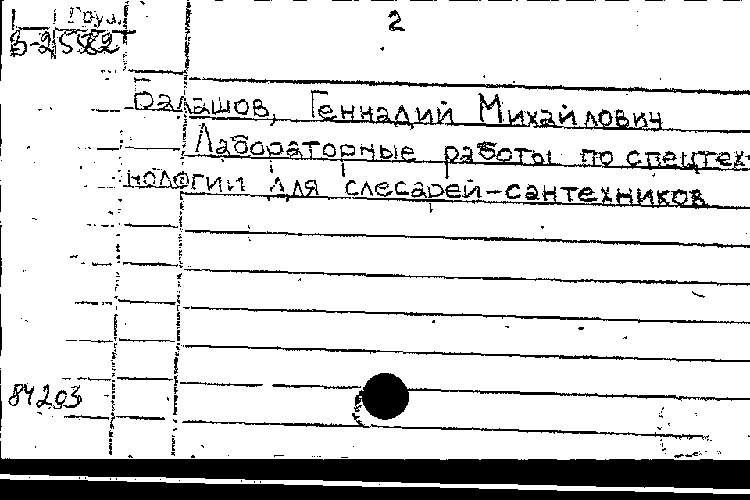 2
Груз.
Б-2 5562
Балашов, Геннадий Михайлович
Лабораторные работы по спецтех-
нологии для слесарей-сантехников
84203